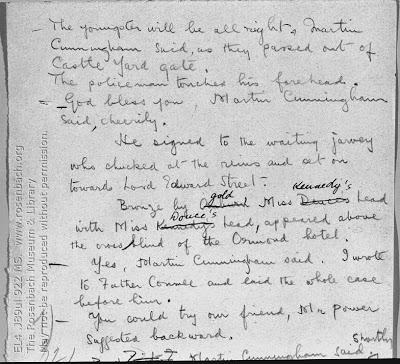 — The youngster will be all right, Martin
Cunningham said, as they passed out of
Castle Yard gate.
The policeman touched his forehead.
— God bless you, Martin Cunningham
said, cheerily.
He signed to the waiting jarvey
who chucked at the reins and set on
towards Lord Edward Street.
Bronze by gold Miss Kennedy's head
with Miss Douce's head, appeared above
the crossblind of the Ormond hotel.
— Yes, Martin Cunningham said. I wrote
to Father Conmee and laid the whole case
before him.
— You could try our friend, Mr Power
suggested backward.
Martin Cunningham said shortly
EL4 .J89ul 922 MS. www.rosenbach.org
The Rosenbach Museum & Library
May not be reproduced without permission.